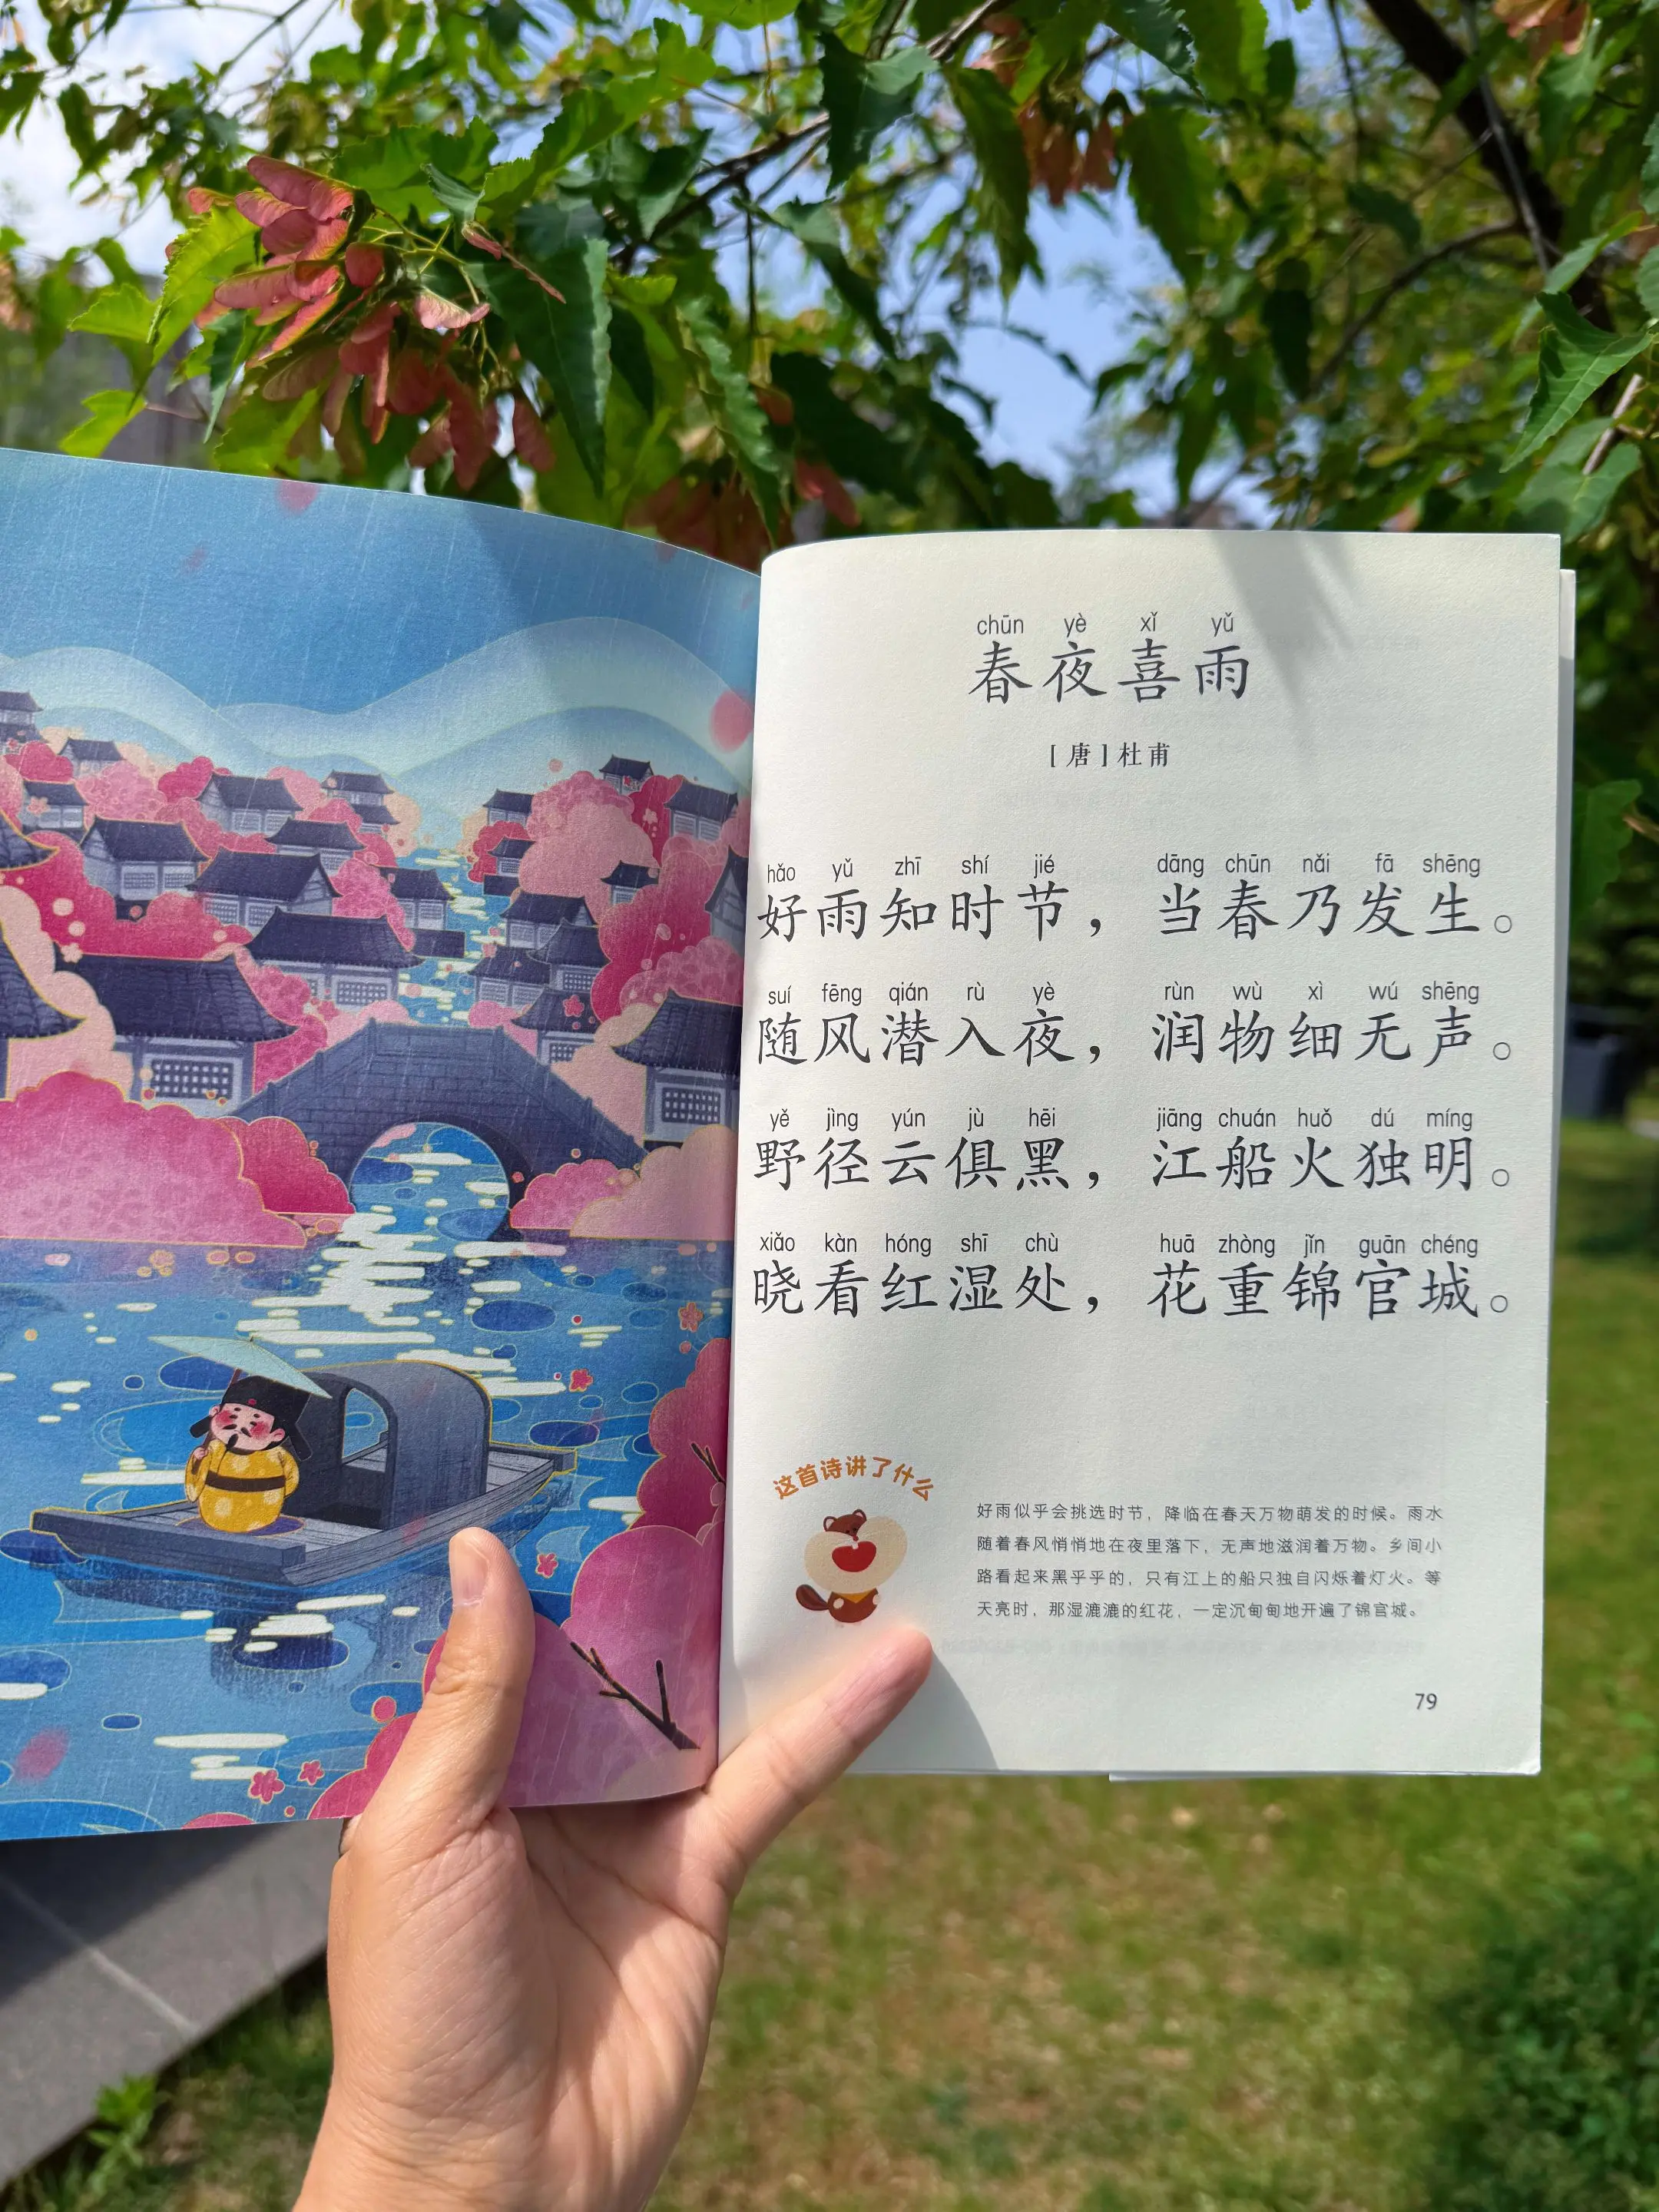 chūn yè xǐ yǔ
春夜喜雨
[唐]杜甫
hǎo yǔ zhī shí jié dāng chūn nǎi fā shēng
好雨知时节，当春乃发生。
suí fēng qián rù yè rùn wù xì wú shēng
随风潜入夜，润物细无声。
yě jìng yún jù hēi jiāng chuán huǒ dú míng
野径云俱黑，江船火独明。
xiǎo kàn hóng shī chù huā zhòng jǐn guān chéng
晓看红湿处，花重锦官城。
这首诗讲了什么
好雨似乎会挑选时节，降临在春天万物萌发的时候。雨水
随着春风悄悄地在夜里落下，无声地滋润着万物。乡间小
路看起来黑乎乎的，只有江上的船只独自闪烁着灯火。等
天亮时，那湿漉漉的红花，一定沉甸甸地开遍了锦官城。
79